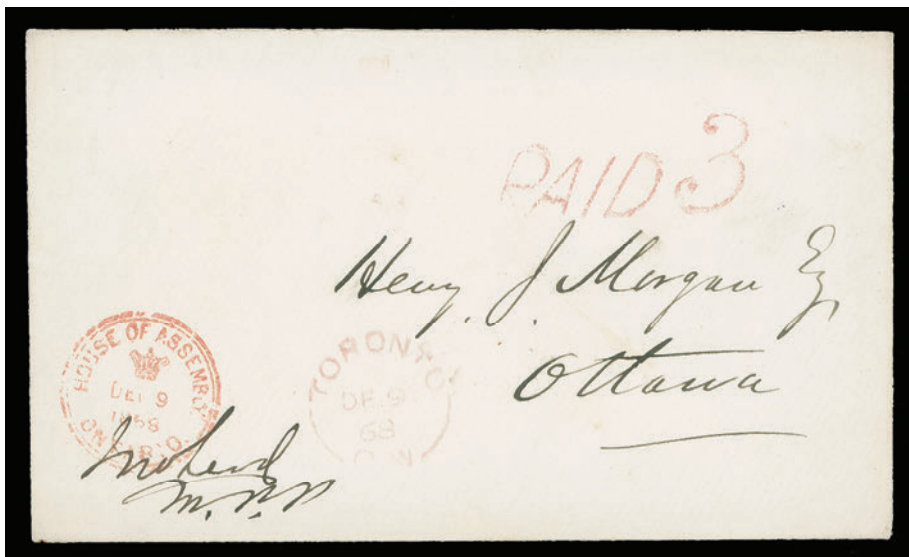 PAID 3
Henry J. Morgan Esq
Ottawa
HOUSE OF ASSEMBLY
DEC 9
1868
ONTARIO
TORONTO
DE 9
68
C.W
M.P.P